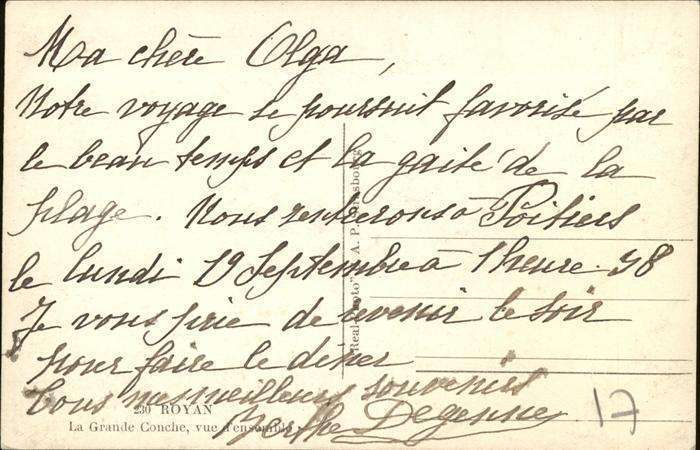 Ma chère Olga,
Notre voyage se poursuit favorisé par
le beau temps et la gaité de la
plage. Nous rentrerons à Poitiers
le lundi 19 Septembre à 1 heure 58
Je vous prie de venir le soir
pour faire le dîner
Tous mes meilleurs souvenirs
Berthe Degenne
17
230 ROYAN
La Grande Conche, vue d'ensemble
"Real-Photo" A. P. Strasbourg